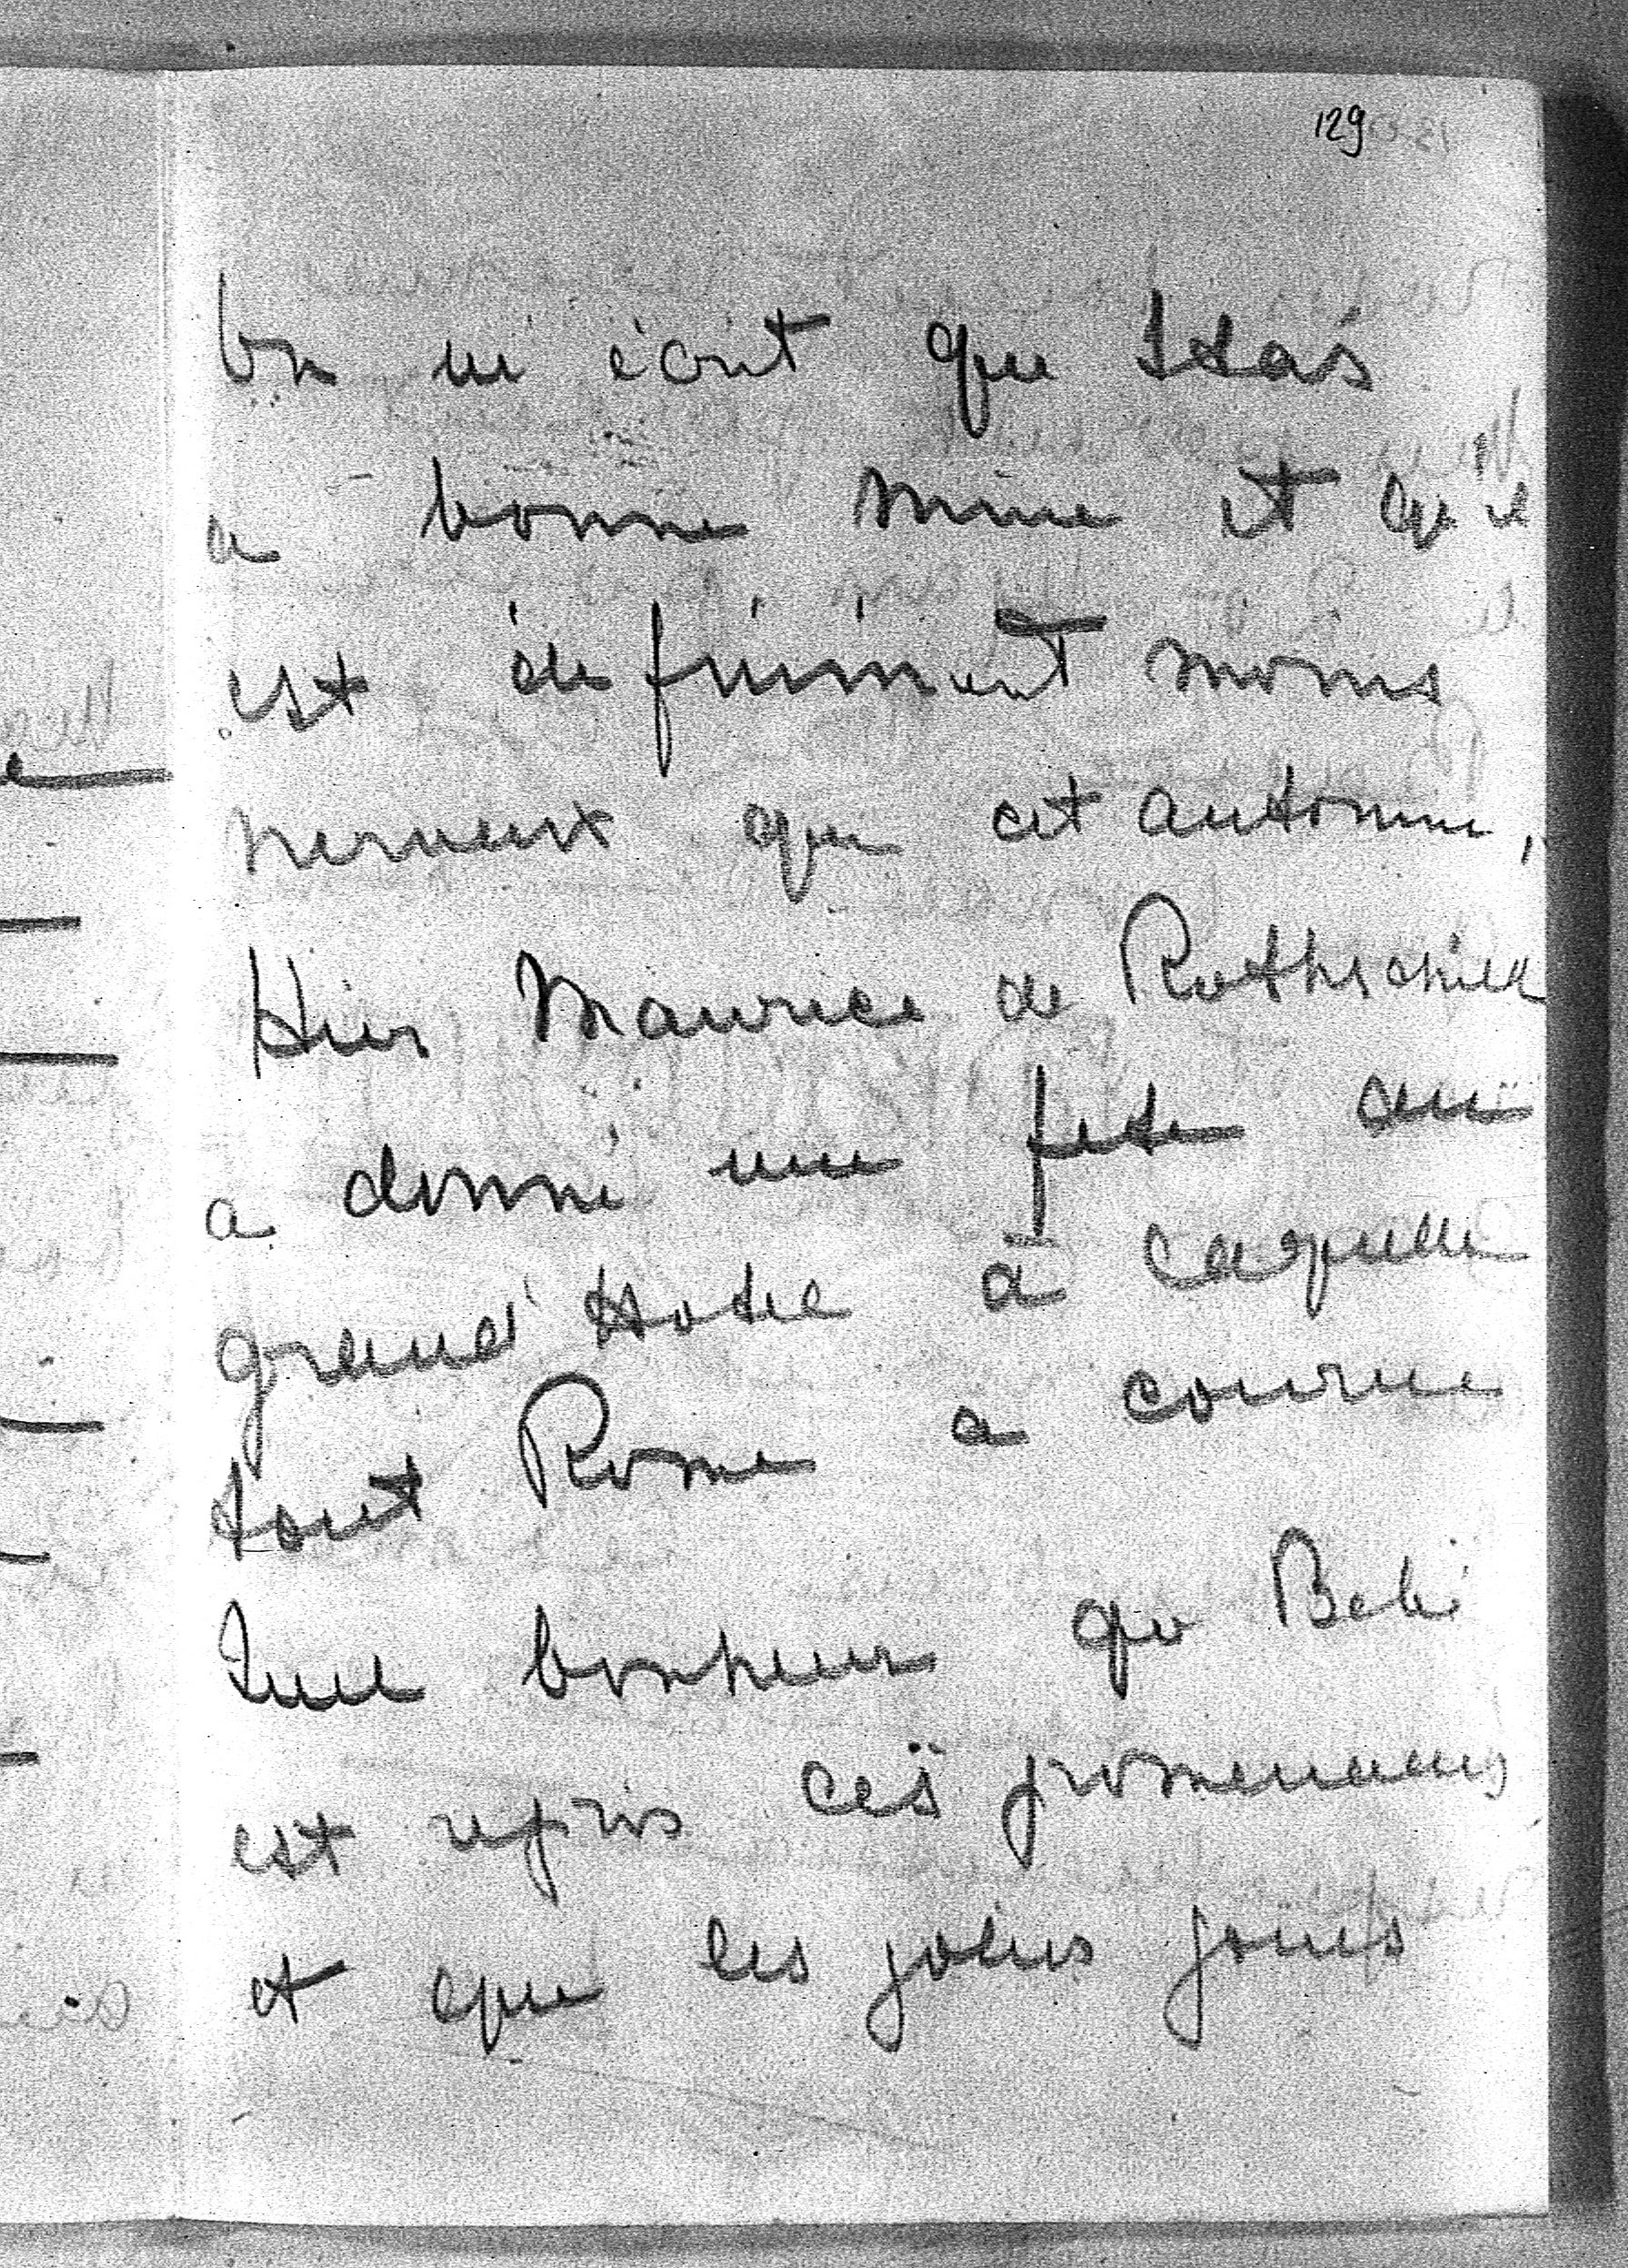 129
On m'écrit que Staś
a bonne mine et qu'il
est définiment moins
nerveux que cet automne,
Hier Maurice de Rothschild
a donné une fete au
grand Hotel à laquelle
tout Rome a courue
Quel bonheur que Bebé
est repris ces promenades
et que les jolies joues